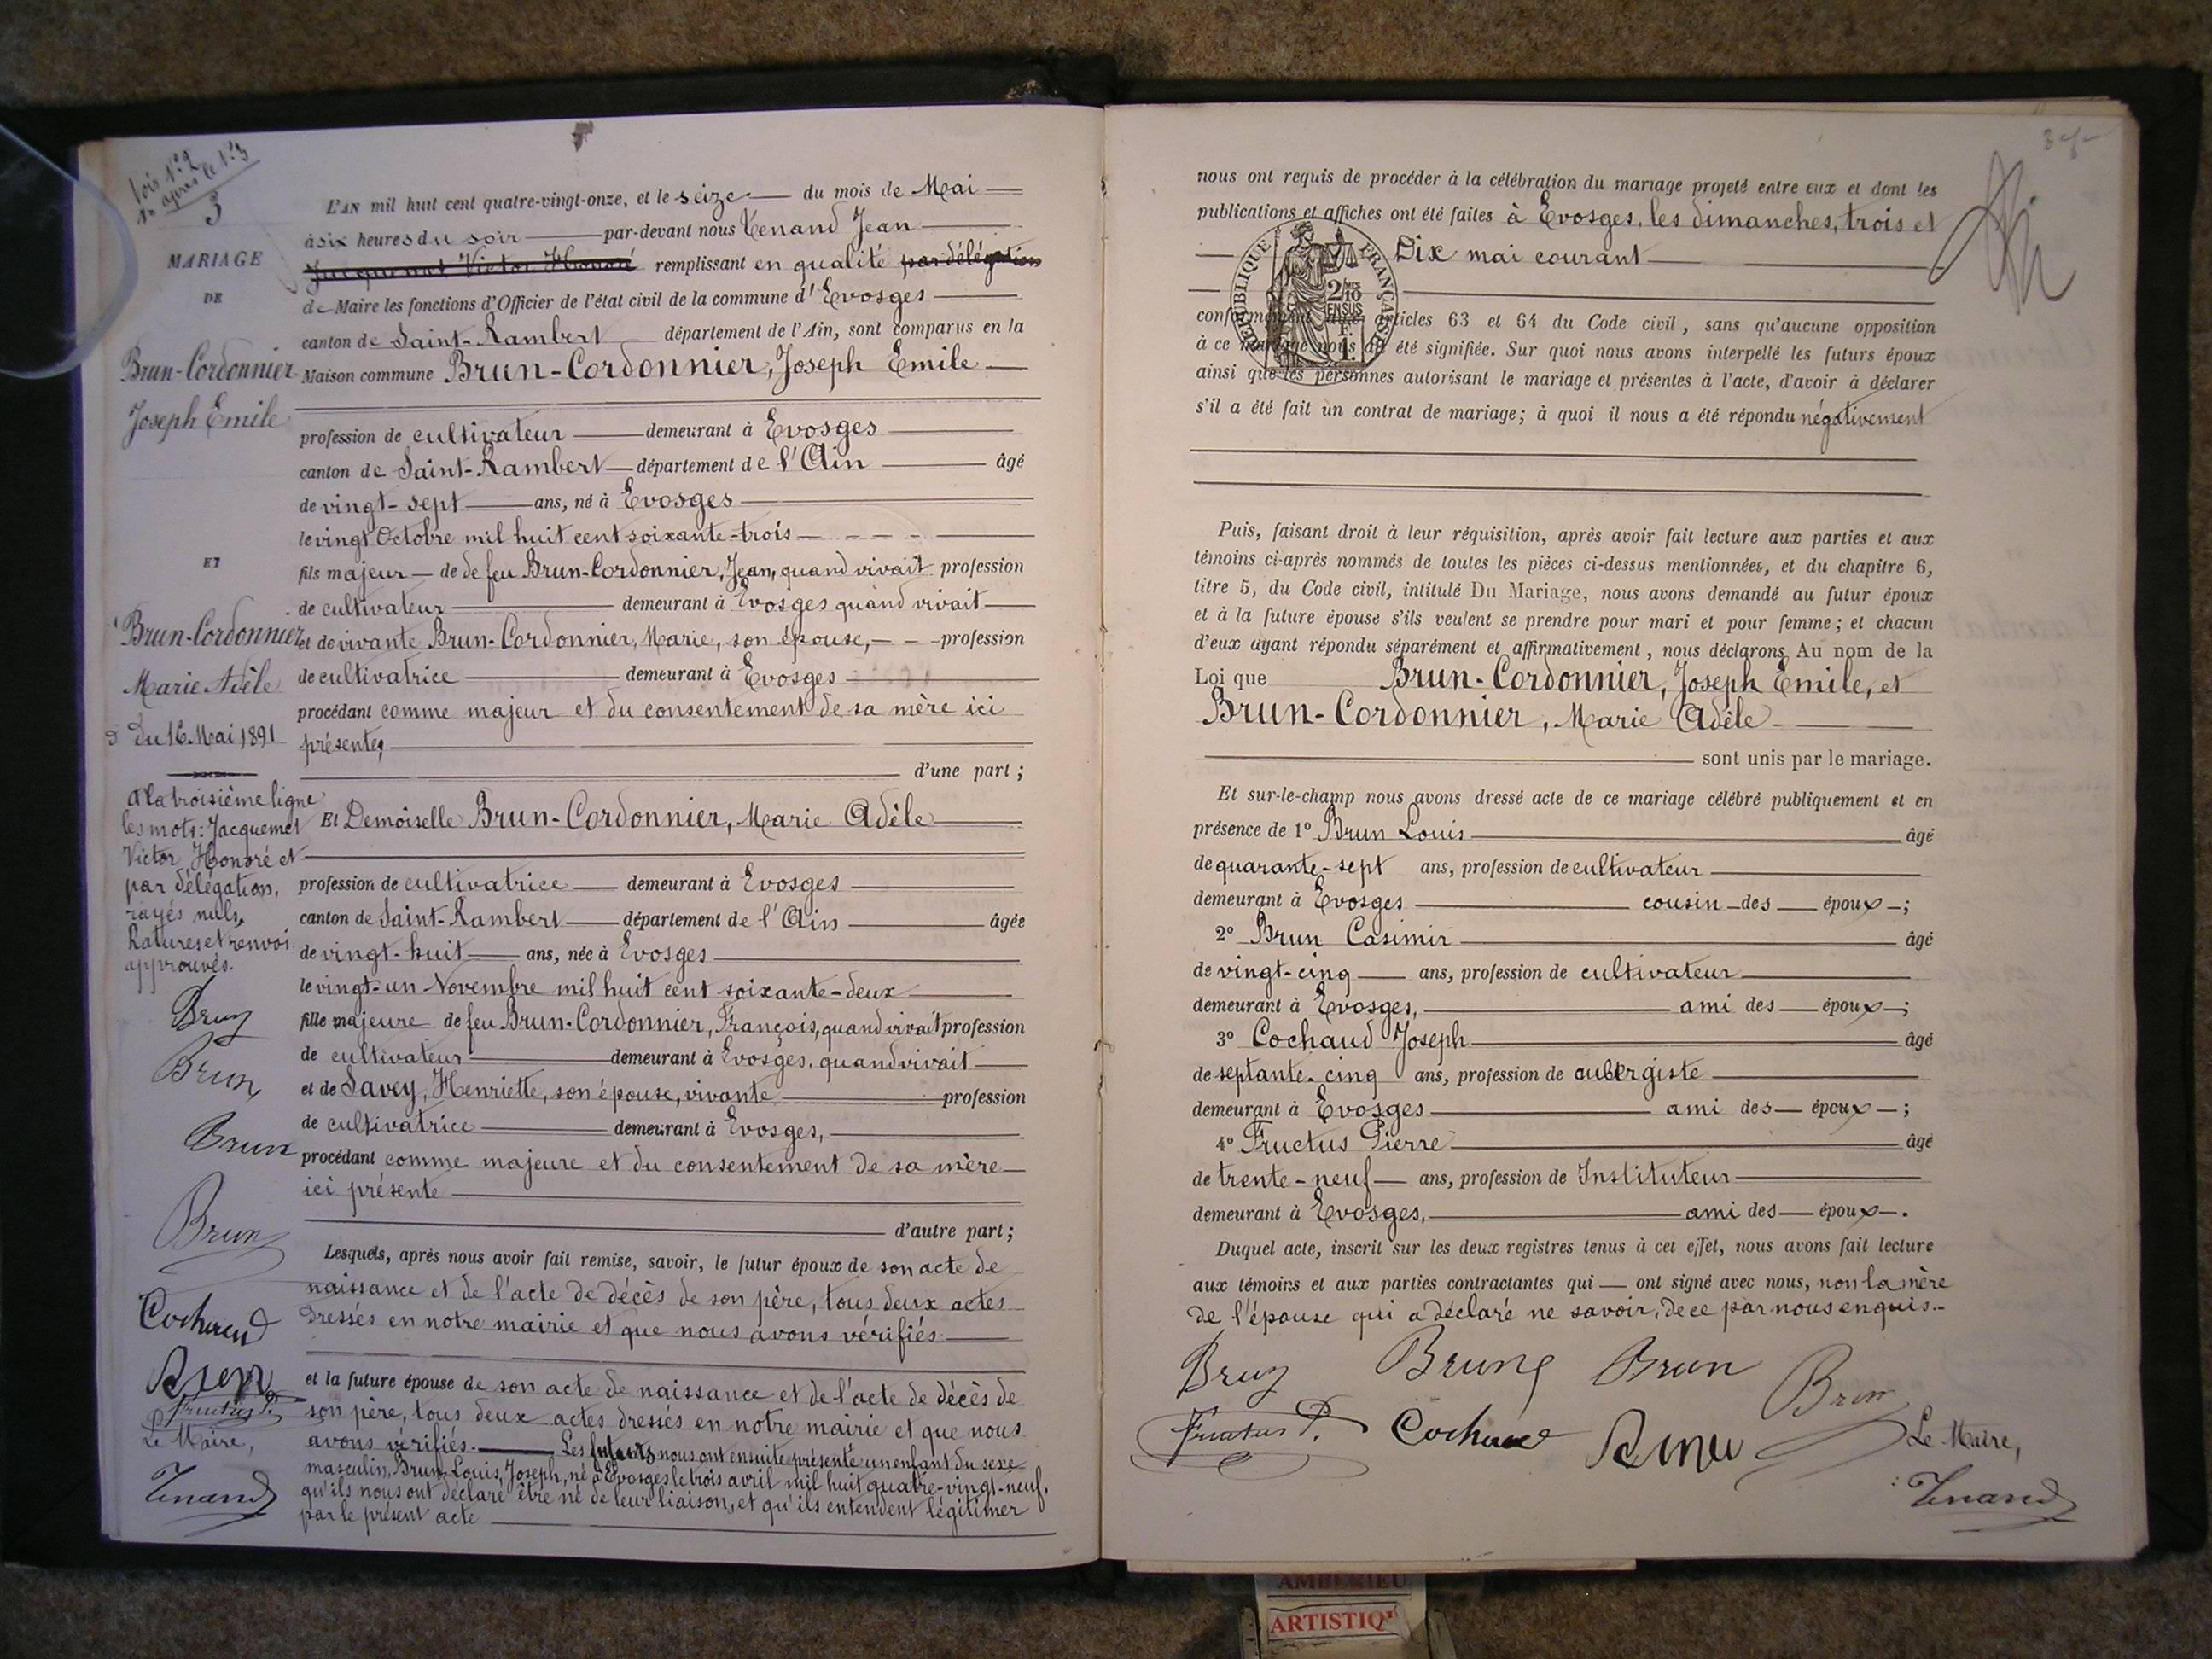 Vois N°2
après le N°3
3
MARIAGE
DE
Brun-Cordonnier
Joseph Emile
ET
Brun-Cordonnier
Marie Adèle
du 16 Mai 1891
A la troisième ligne
les mots: Jacquemet
Victor Honoré et
par délégation,
rayés nuls.
Ratures et renvoi
approuvés.
Brun
Brun
Brun
Brun
Cochaud
Brun
Fructus P.
Le Maire,
Tenand
L'AN mil huit cent quatre-vingt-onze, et le seize du mois de Mai
à six heures du soir par-devant nous Tenand Jean
Jacquemet Victor Honoré remplissant en qualité par délégation
de Maire les fonctions d'Officier de l'état civil de la commune d'Evosges
canton de Saint-Rambert département de l'Ain, sont comparus en la
Maison commune Brun-Cordonnier, Joseph Emile
profession de cultivateur demeurant à Evosges
canton de Saint-Rambert département de l'Ain âgé
de vingt-sept ans, né à Evosges
le vingt Octobre mil huit cent soixante-trois
fils majeur de de feu Brun-Cordonnier, Jean, quand vivait profession
de cultivateur demeurant à Evosges quand vivait
et de vivante Brun-Cordonnier, Marie, son épouse, profession
de cultivatrice demeurant à Evosges
procédant comme majeur et du consentement de sa mère ici
présente,
d'une part;
Et Demoiselle Brun-Cordonnier, Marie Adèle
profession de cultivatrice demeurant à Evosges
canton de Saint-Rambert département de l'Ain âgée
de vingt-huit ans, née à Evosges
le vingt-un Novembre mil huit cent soixante-deux
fille majeure de feu Brun-Cordonnier, François, quand vivait profession
de cultivateur demeurant à Evosges, quand vivait
et de Savey, Henriette, son épouse, vivante profession
de cultivatrice demeurant à Evosges,
procédant comme majeure et du consentement de sa mère
ici présente
d'autre part;
Lesquels, après nous avoir fait remise, savoir, le futur époux de son acte de
naissance et de l'acte de décès de son père, tous deux actes
dressés en notre mairie et que nous avons vérifiés
et la future épouse de son acte de naissance et de l'acte de décès de
son père, tous deux actes dressés en notre mairie et que nous
avons vérifiés. Les futurs nous ont ensuite présenté un enfant du sexe
masculin, Brun, Louis, Joseph, né à Evosges le trois avril mil huit quatre-vingt-neuf,
qu'ils nous ont déclaré être né de leur liaison, et qu'ils entendent légitimer
par le présent acte
nous ont requis de procéder à la célébration du mariage projeté entre eux et dont les
publications et affiches ont été faites à Evosges, les dimanches, trois et
Dix mai courant
RÉPUBLIQUE FRANÇAISE
2/10 EN SUS
1F.
conformément aux articles 63 et 64 du Code civil, sans qu'aucune opposition
à ce mariage nous ait été signifiée. Sur quoi nous avons interpellé les futurs époux
ainsi que les personnes autorisant le mariage et présentes à l'acte, d'avoir à déclarer
s'il a été fait un contrat de mariage; à quoi il nous a été répondu négativement
Puis, faisant droit à leur réquisition, après avoir fait lecture aux parties et aux
témoins ci-après nommés de toutes les pièces ci-dessus mentionnées, et du chapitre 6,
titre 5, du Code civil, intitulé Du Mariage, nous avons demandé au futur époux
et à la future épouse s'ils veulent se prendre pour mari et pour femme; et chacun
d'eux ayant répondu séparément et affirmativement, nous déclarons Au nom de la
Loi que Brun-Cordonnier, Joseph Emile, et
Brun-Cordonnier, Marie Adèle
sont unis par le mariage.
Et sur-le-champ nous avons dressé acte de ce mariage célébré publiquement et en
présence de 1° Brun Louis âgé
de quarante-sept ans, profession de cultivateur
demeurant à Evosges cousin des époux;
2° Brun Casimir âgé
de vingt-cinq ans, profession de cultivateur
demeurant à Evosges, ami des époux;
3° Cochaud Joseph âgé
de septante-cinq ans, profession de aubergiste
demeurant à Evosges ami des époux;
4° Fructus Pierre âgé
de trente-neuf ans, profession de Instituteur
demeurant à Evosges, ami des époux.
Duquel acte, inscrit sur les deux registres tenus à cet effet, nous avons fait lecture
aux témoins et aux parties contractantes qui ont signé avec nous, non la mère
de l'épouse qui a déclaré ne savoir, de ce par nous enquis.
Brun Brun Brun Brun
Fructus P. Cochaud Brun Le Maire,
Tenand
AMBERIEU
ARTISTIQ